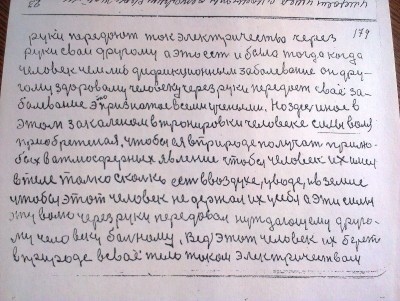 179
руки передают ток электричество через
руки сваи другому а это сть и была тогда когда
человек чем либ дифекционным забалевание он дру-
гому здоровому человеку через руки передает сваё за-
балевание это признатое всеми учеными. Но здесь иное в
этом закаленом в тренировки человеке силы воля
приобретеная, чтобы ся в природе получат при лю-
бых в атмосферных явление чтобы человек их имел
в теле толко сколько есть в воздухе, у воде, и в земле
чтобы этот человек не держал их у себы а эти силы
эту валю через руки передовал нуждающему друго-
му человеку балному, Вед этот человек их берет
в природе в сваё тело током электричеством